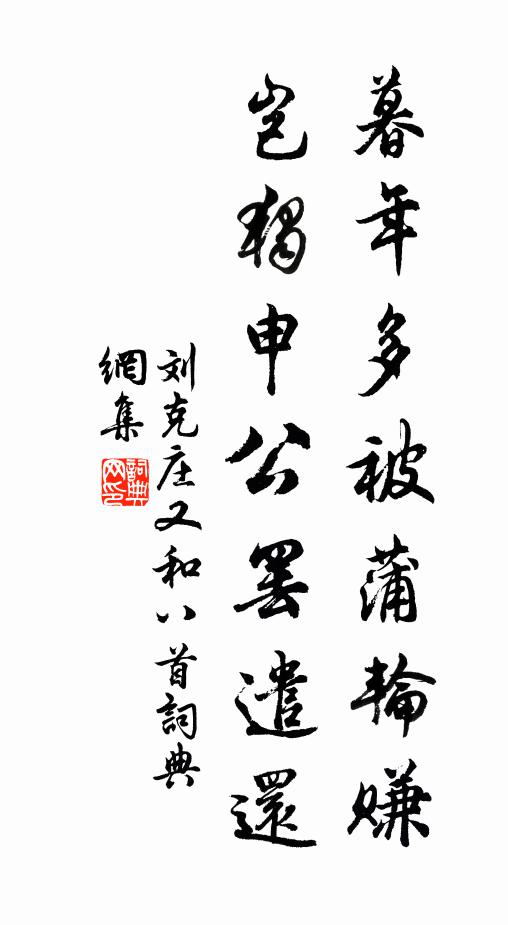 暮年多被蒲輪賺
豈獨申公罢遣還
刘克庄又和八首詞典
網集
詞典网印